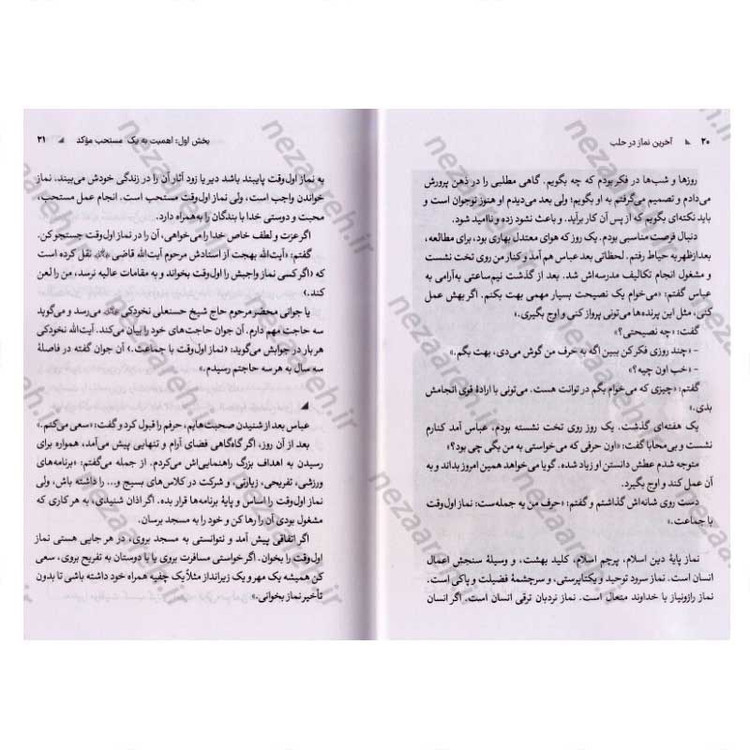 ۲۰ آخرین نماز در حلب
روزها و شب‌ها در فکر بودم که چه بگویم. گاهی مطالبی را در ذهن پرورش
می‌دادم و تصمیم می‌گرفتم به او بگویم؛ ولی بعد می‌دیدم او هنوز نوجوان است و
باید نکته‌ای بگویم که از پس آن کار برآید. و باعث نشود زده و ناامید شود.
دنبال فرصت مناسبی بودم. یک روز که هوای معتدل بهاری بود، برای مطالعه،
بعدازظهر به حیاط رفتم. لحظاتی بعد عباس هم آمد و کنار من روی تخت نشست
و مشغول انجام تکالیف مدرسه‌اش شد. بعد از گذشت نیم‌ساعتی به‌آرامی به
عباس گفتم: «می‌خوام یک نصیحت بسیار مهمی بهت بکنم. اگر بهش عمل
کنی، مثل این پرنده‌ها می‌تونی پرواز کنی و اوج بگیری.»
گفت: «چه نصیحتی؟»
- «چند روزی فکر کن ببین اگه به حرف من گوش می‌دی، بهت بگم.»
- «خب اون چیه؟»
گفتم: «چیزی که می‌خوام بگم در توانت هست. می‌تونی با ارادهٔ قوی انجامش
بدی.»
یک هفته‌ای گذشت. یک روز روی تخت نشسته بودم، عباس آمد کنارم
نشست و بی‌محابا گفت: «اون حرفی که می‌خواستی به من بگی چی بود؟»
متوجه شدم عطش دانستن او زیاد شده. گویا می‌خواهد همین امروز بداند و به
آن عمل کند و اوج بگیرد.
دست روی شانه‌اش گذاشتم و گفتم: «حرف من یه جمله‌ست: نماز اول‌وقت
با جماعت.»
نماز پایهٔ دین اسلام، پرچم اسلام، کلید بهشت، و وسیلهٔ سنجش اعمال
انسان است. نماز سرود توحید و یکتاپرستی، و سرچشمهٔ فضیلت و پاکی است.
نماز رازونیاز با خداوند متعال است. نماز نردبان ترقی انسان است. اگر انسان
بخش اول: اهمیت به یک مستحب مؤکد ۲۱
به نماز اول‌وقت پایبند باشد دیر یا زود آثار آن را در زندگی خودش می‌بیند. نماز
خواندن واجب است، ولی نماز اول‌وقت مستحب است. انجام عمل مستحب،
محبت و دوستی خدا با بندگان را به‌همراه دارد.
اگر عزت و لطف خاص خدا را می‌خواهی، آن را در نماز اول‌وقت جستجو کن.
گفتم: «آیت‌الله بهجت از استادش مرحوم آیت‌الله قاضی نقل کرده است
که «اگر کسی نماز واجبش را اول‌وقت بخواند و به مقامات عالیه نرسد، من را لعن
کند.»
یا جوانی محضر مرحوم حاج شیخ حسنعلی نخودکی می‌رسد و می‌گوید
سه حاجت مهم دارم. آن جوان حاجت‌های خود را بیان می‌کند. آیت‌الله نخودکی
هر بار در جوابش می‌گوید: «نماز اول‌وقت با جماعت.» آن جوان گفته در فاصلهٔ
سه سال به هر سه حاجتم رسیدم.»
عباس بعد از شنیدن صحبت‌هایم، حرفم را قبول کرد و گفت: «سعی می‌کنم.»
بعد از آن روز، اگر گاه‌گاهی فضای آرام و تنهایی پیش می‌آمد، همواره برای
رسیدن به اهداف بزرگ راهنمایی‌اش می‌کردم. از جمله می‌گفتم: «برنامه‌های
ورزشی، تفریحی، زیارتی، و شرکت در کلاس‌های بسیج و... را داشته باش، ولی
نماز اول‌وقت را اساس و پایهٔ برنامه‌ها قرار بده. اگر اذان شنیدی، به هر کاری که
مشغول بودی آن را رها کن و خود را به مسجد برسان.
اگر اتفاقی پیش آمد و نتوانستی به مسجد بروی، در هر جایی هستی نماز
اول‌وقت را بخوان. اگر خواستی مسافرت بروی یا با دوستان به تفریح بروی، سعی
کن همیشه یک مهر و زیرانداز مثلاً یک چفیه همراه خود داشته باشی تا بدون
تأخیر نماز بخوانی.»
nezaareh.ir